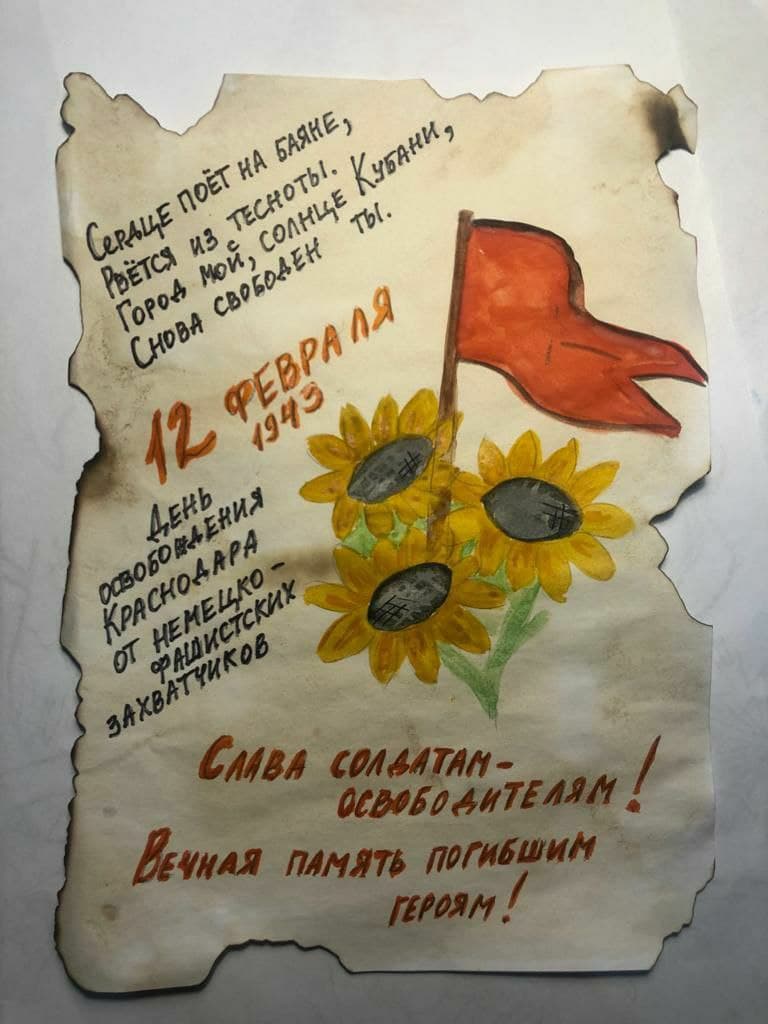 Сердце поёт на баяне,
Рвётся из тесноты.
Город мой, солнце Кубани,
Снова свободен ты.
12 ФЕВРАЛЯ
1943
День
освобождения
Краснодара
от немецко-
фашистских
захватчиков
Слава солдатам-
освободителям!
Вечная память погибшим
героям!